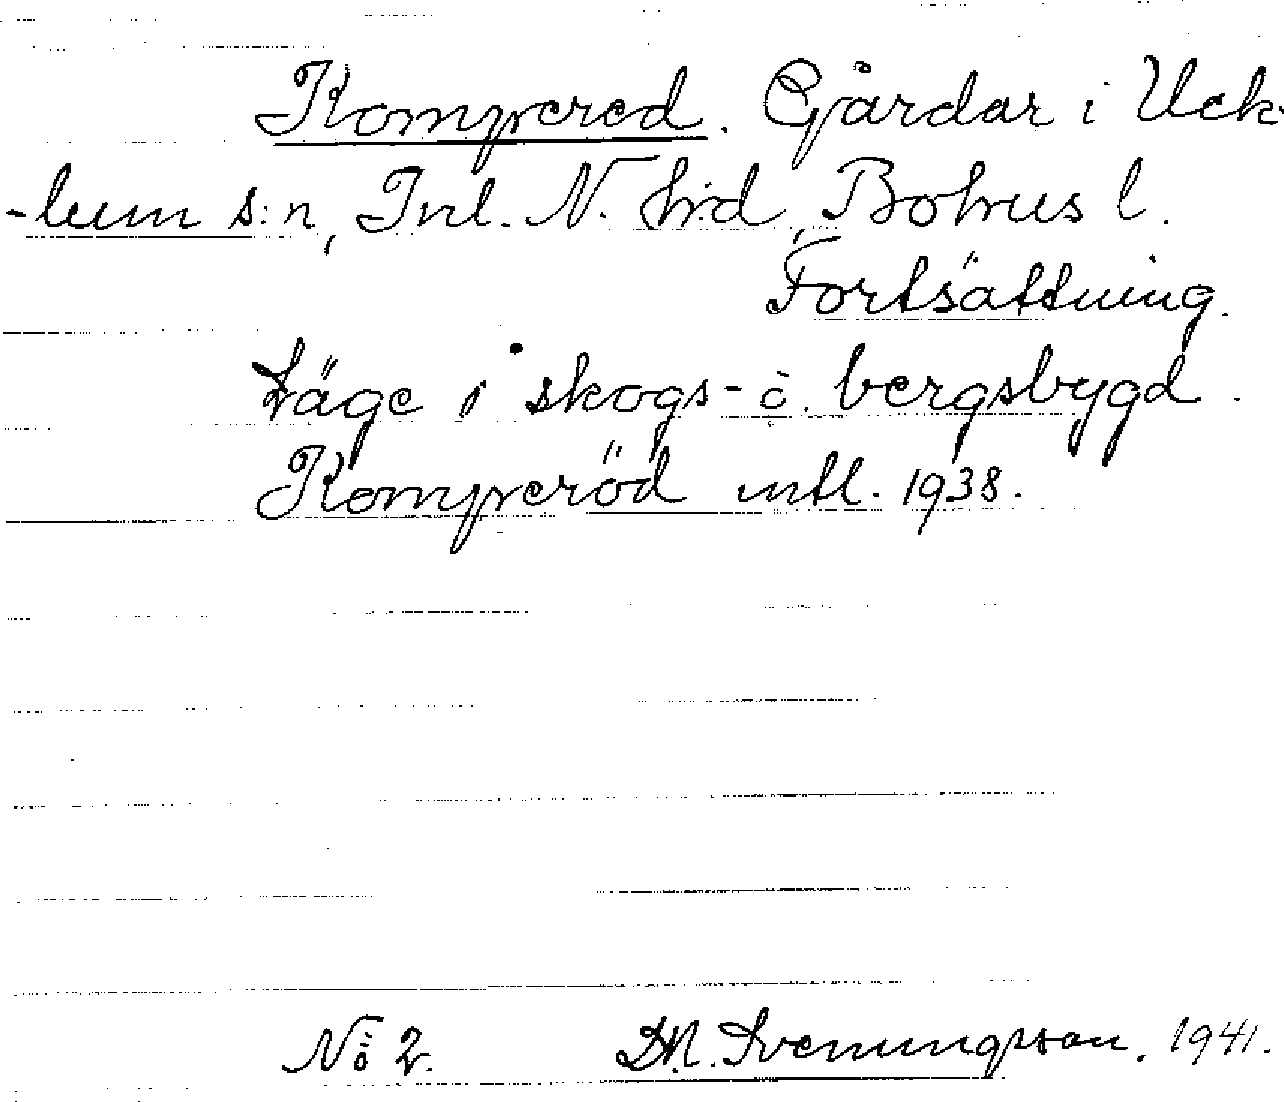 Kompered. Gårdar i Uck-
-lum s:n, Inl. N. hrd, Bohus l.
Fortsättning.
Läge i skogs- o. bergsbygd.
Komperöd mtl. 1938.
No 2. D.N. Svenungsson. 1941.